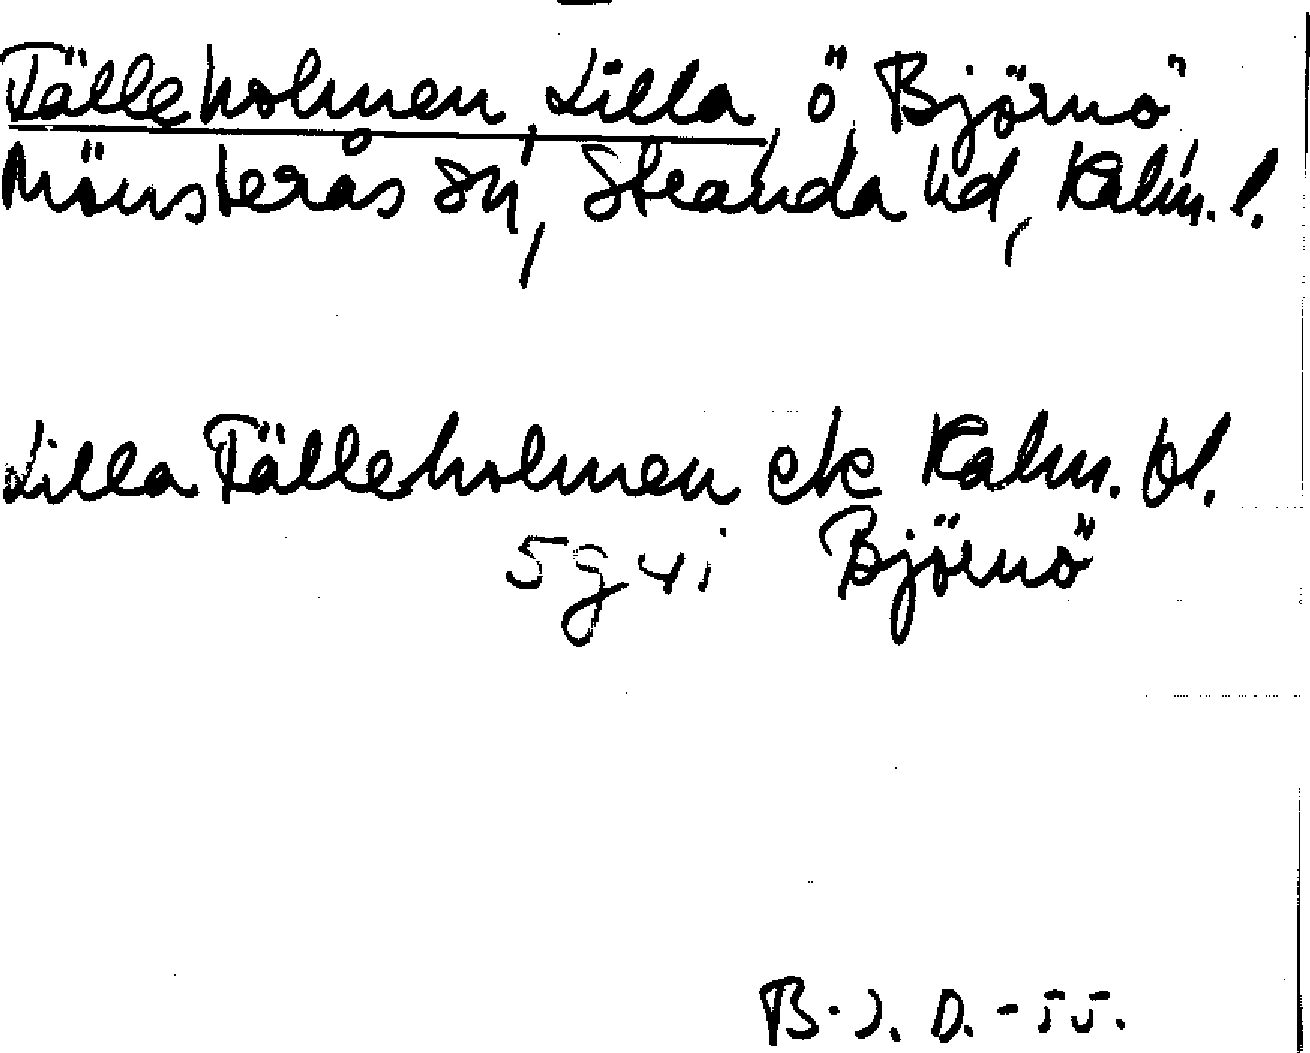 Tälleholmen, Lilla, ö, Björnö,
Mönsterås sn, Stranda hd, Kalm. l.
Lilla Tälleholmen ek Kalm. bl.
5g4i Björnö
B.J.D. -55.